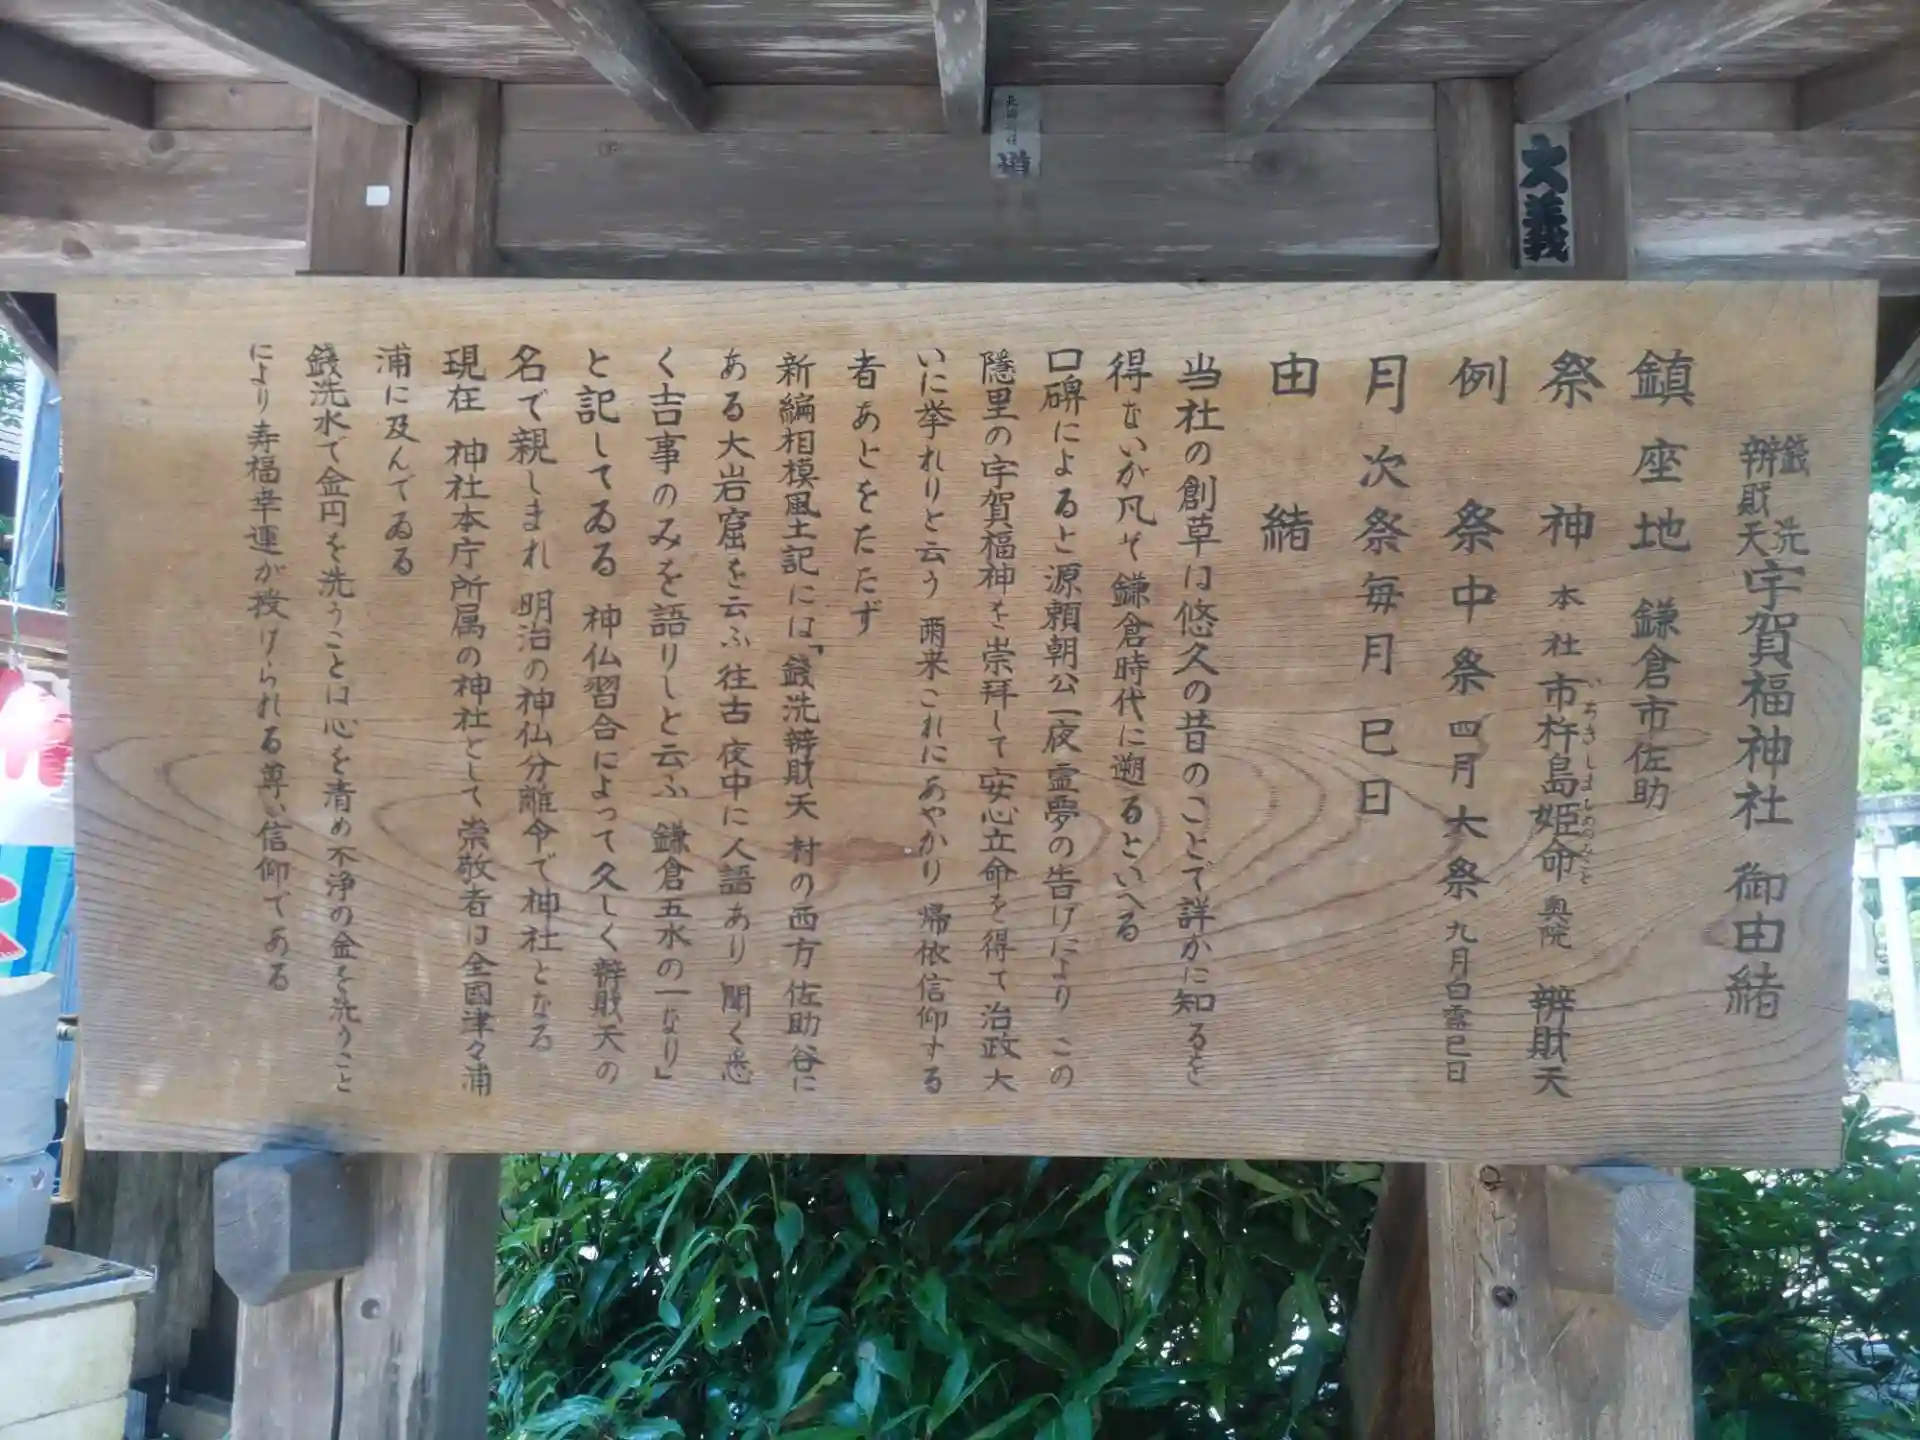 銭洗辨財天宇賀福神社 御由緒
鎮座地 鎌倉市佐助
祭神 本社 市杵島姫命 奥院 辨財天
いちきしまひめのみこと
例祭 中祭 四月 大祭 九月白露巳日
月次祭 毎月 巳日
由緒
当社の創草は悠久の昔のことで詳かに知るを
得ないが凡そ鎌倉時代に遡るといへる
口碑によると源頼朝公一夜霊夢の告げにより この
隱里の宇賀福神を崇拜して安心立命を得て治政大
いに挙れりと云う 爾来これにあやかり 帰依信仰する
者あとをたたず
新編相模風土記には「銭洗辨財天 村の西方佐助谷に
ある大岩窟を云ふ往古夜中に人語あり 聞く悉
く吉事のみを語りしと云ふ 鎌倉五水の一なり」
と記してゐる 神仏習合によって久しく辨財天の
名で親しまれ 明治の神仏分離令で神社となる
現在 神社本庁所属の神社として崇敬者は全國津々浦
浦に及んでゐる
銭洗水で金円を洗うことは心を清め不浄の金を洗うこと
により寿福幸運が授けられる尊い信仰である
大義